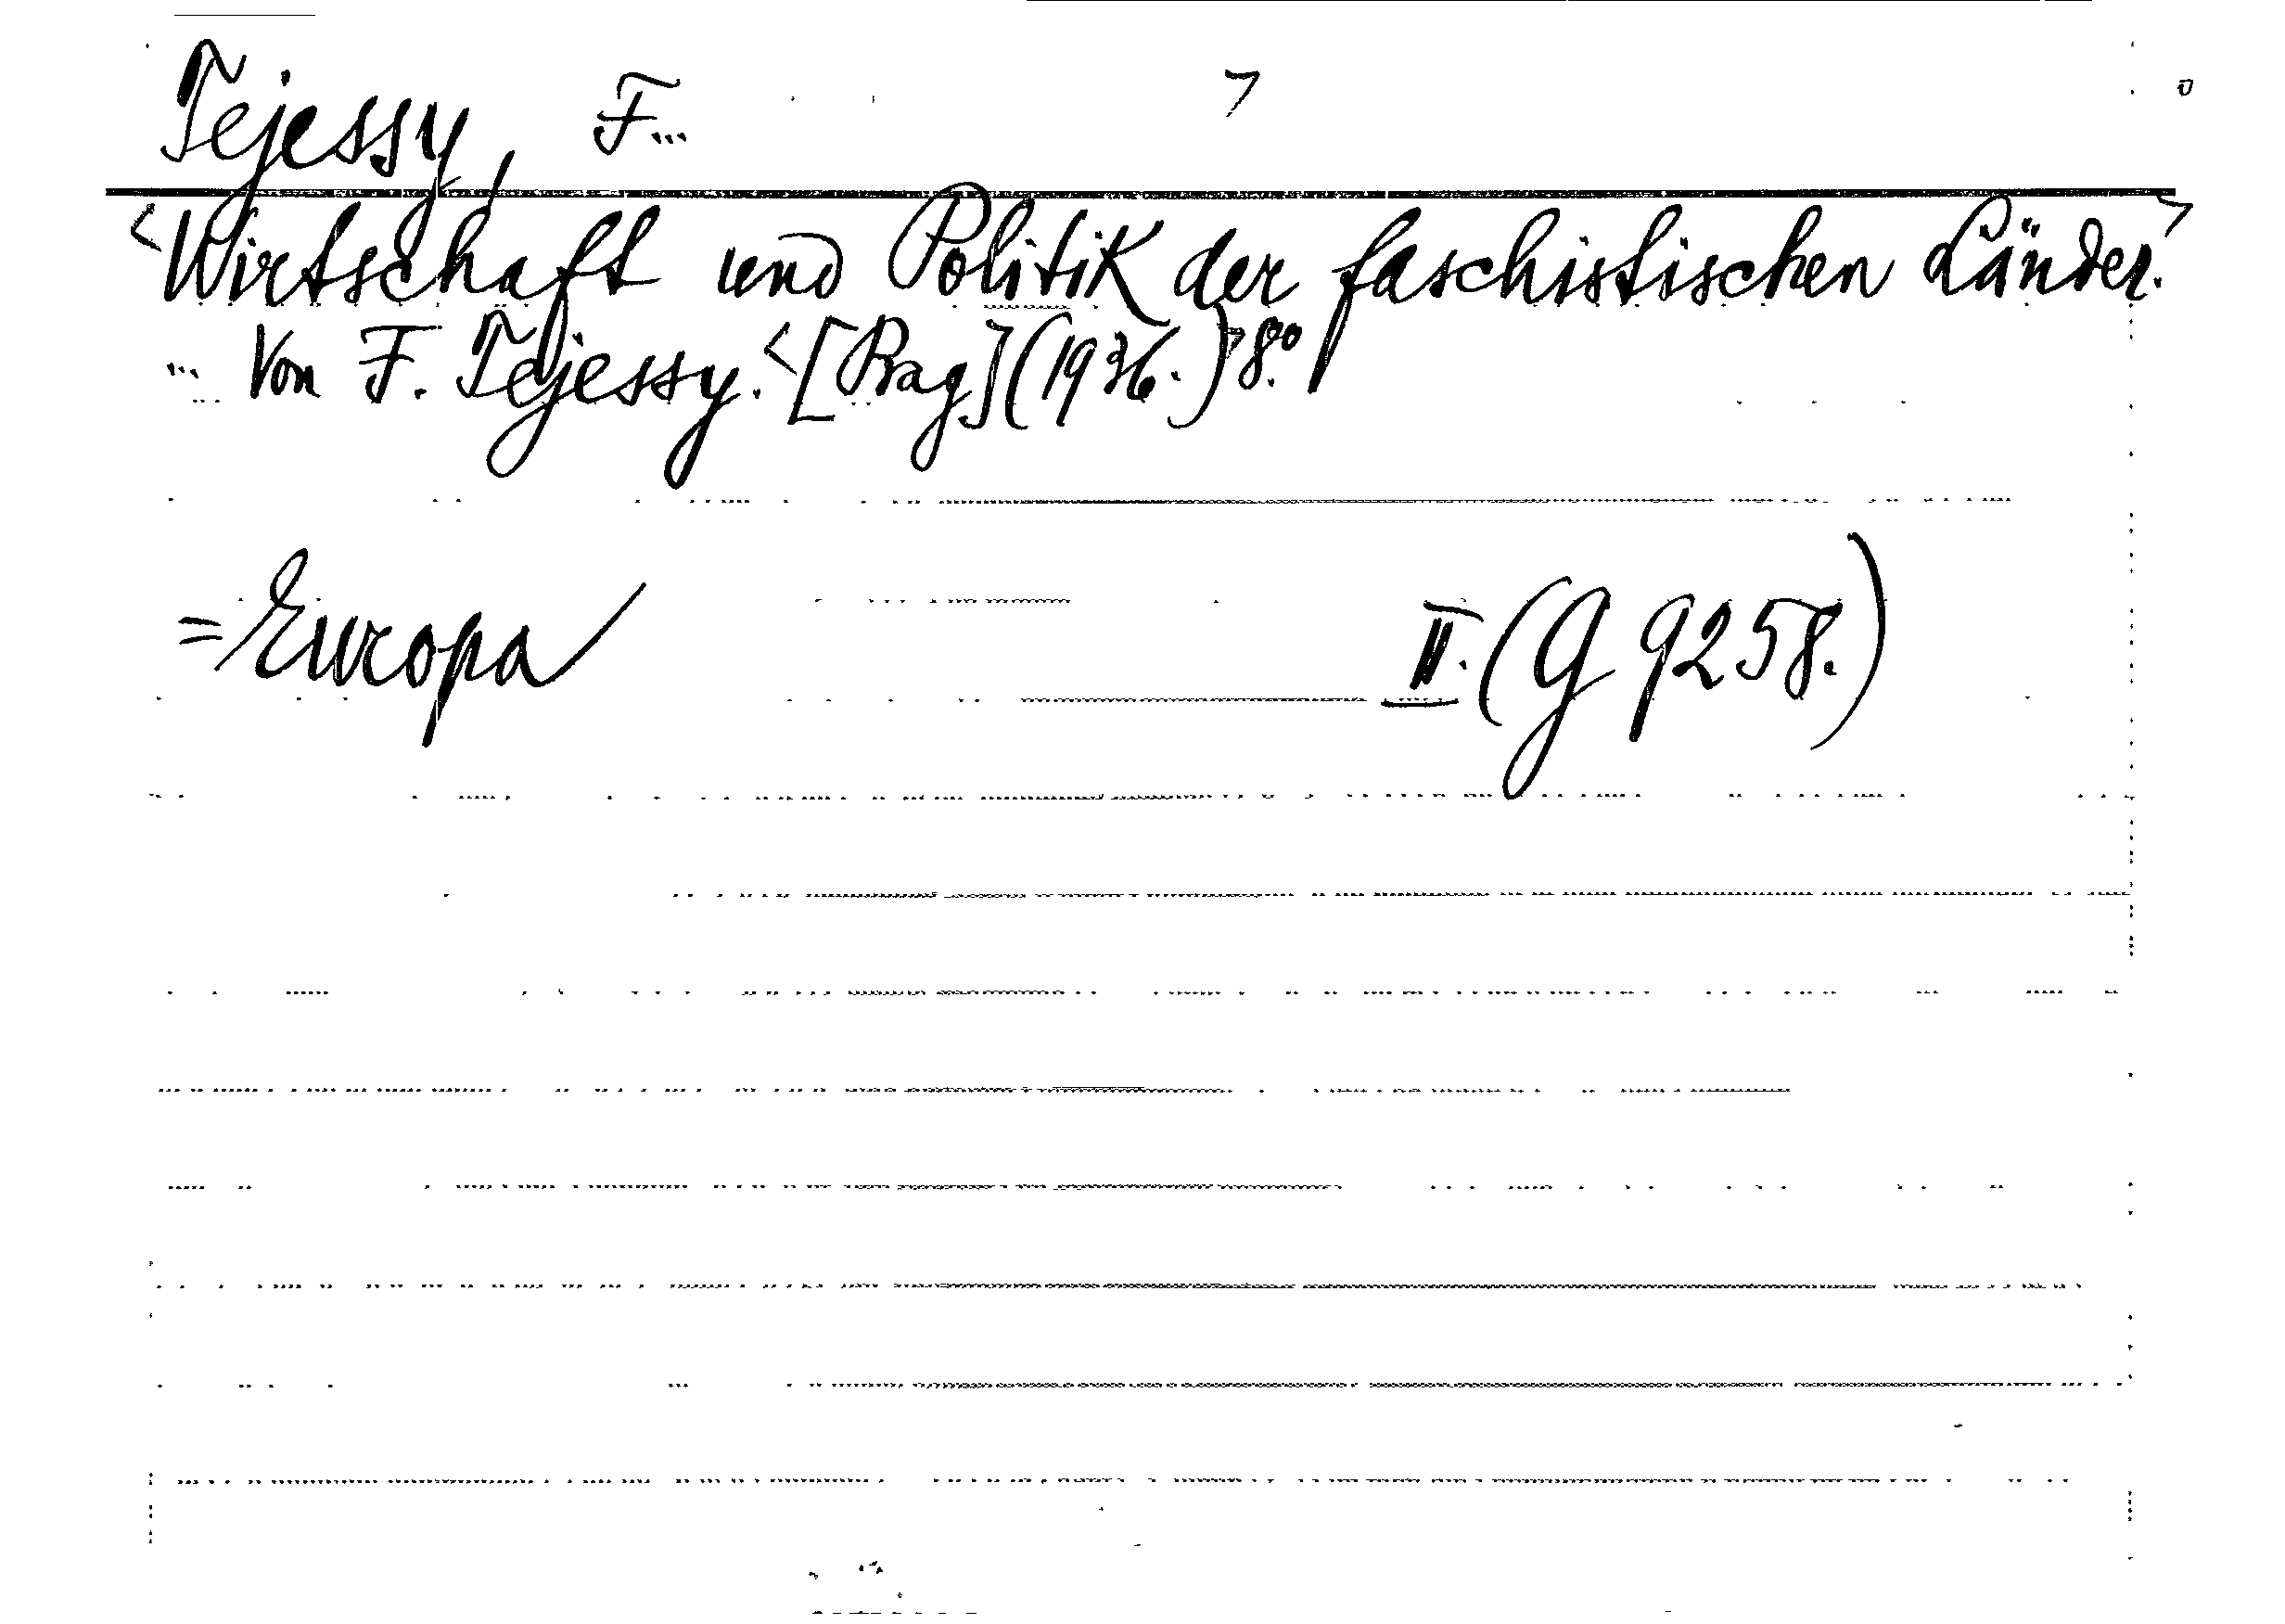 Tejessy, F... >
<Wirtschaft und Politik der faschistischen Länder.>
... Von F. Tejessy. <[Prag] (1936.)> 8.°
= Europa II. (G 9258.)